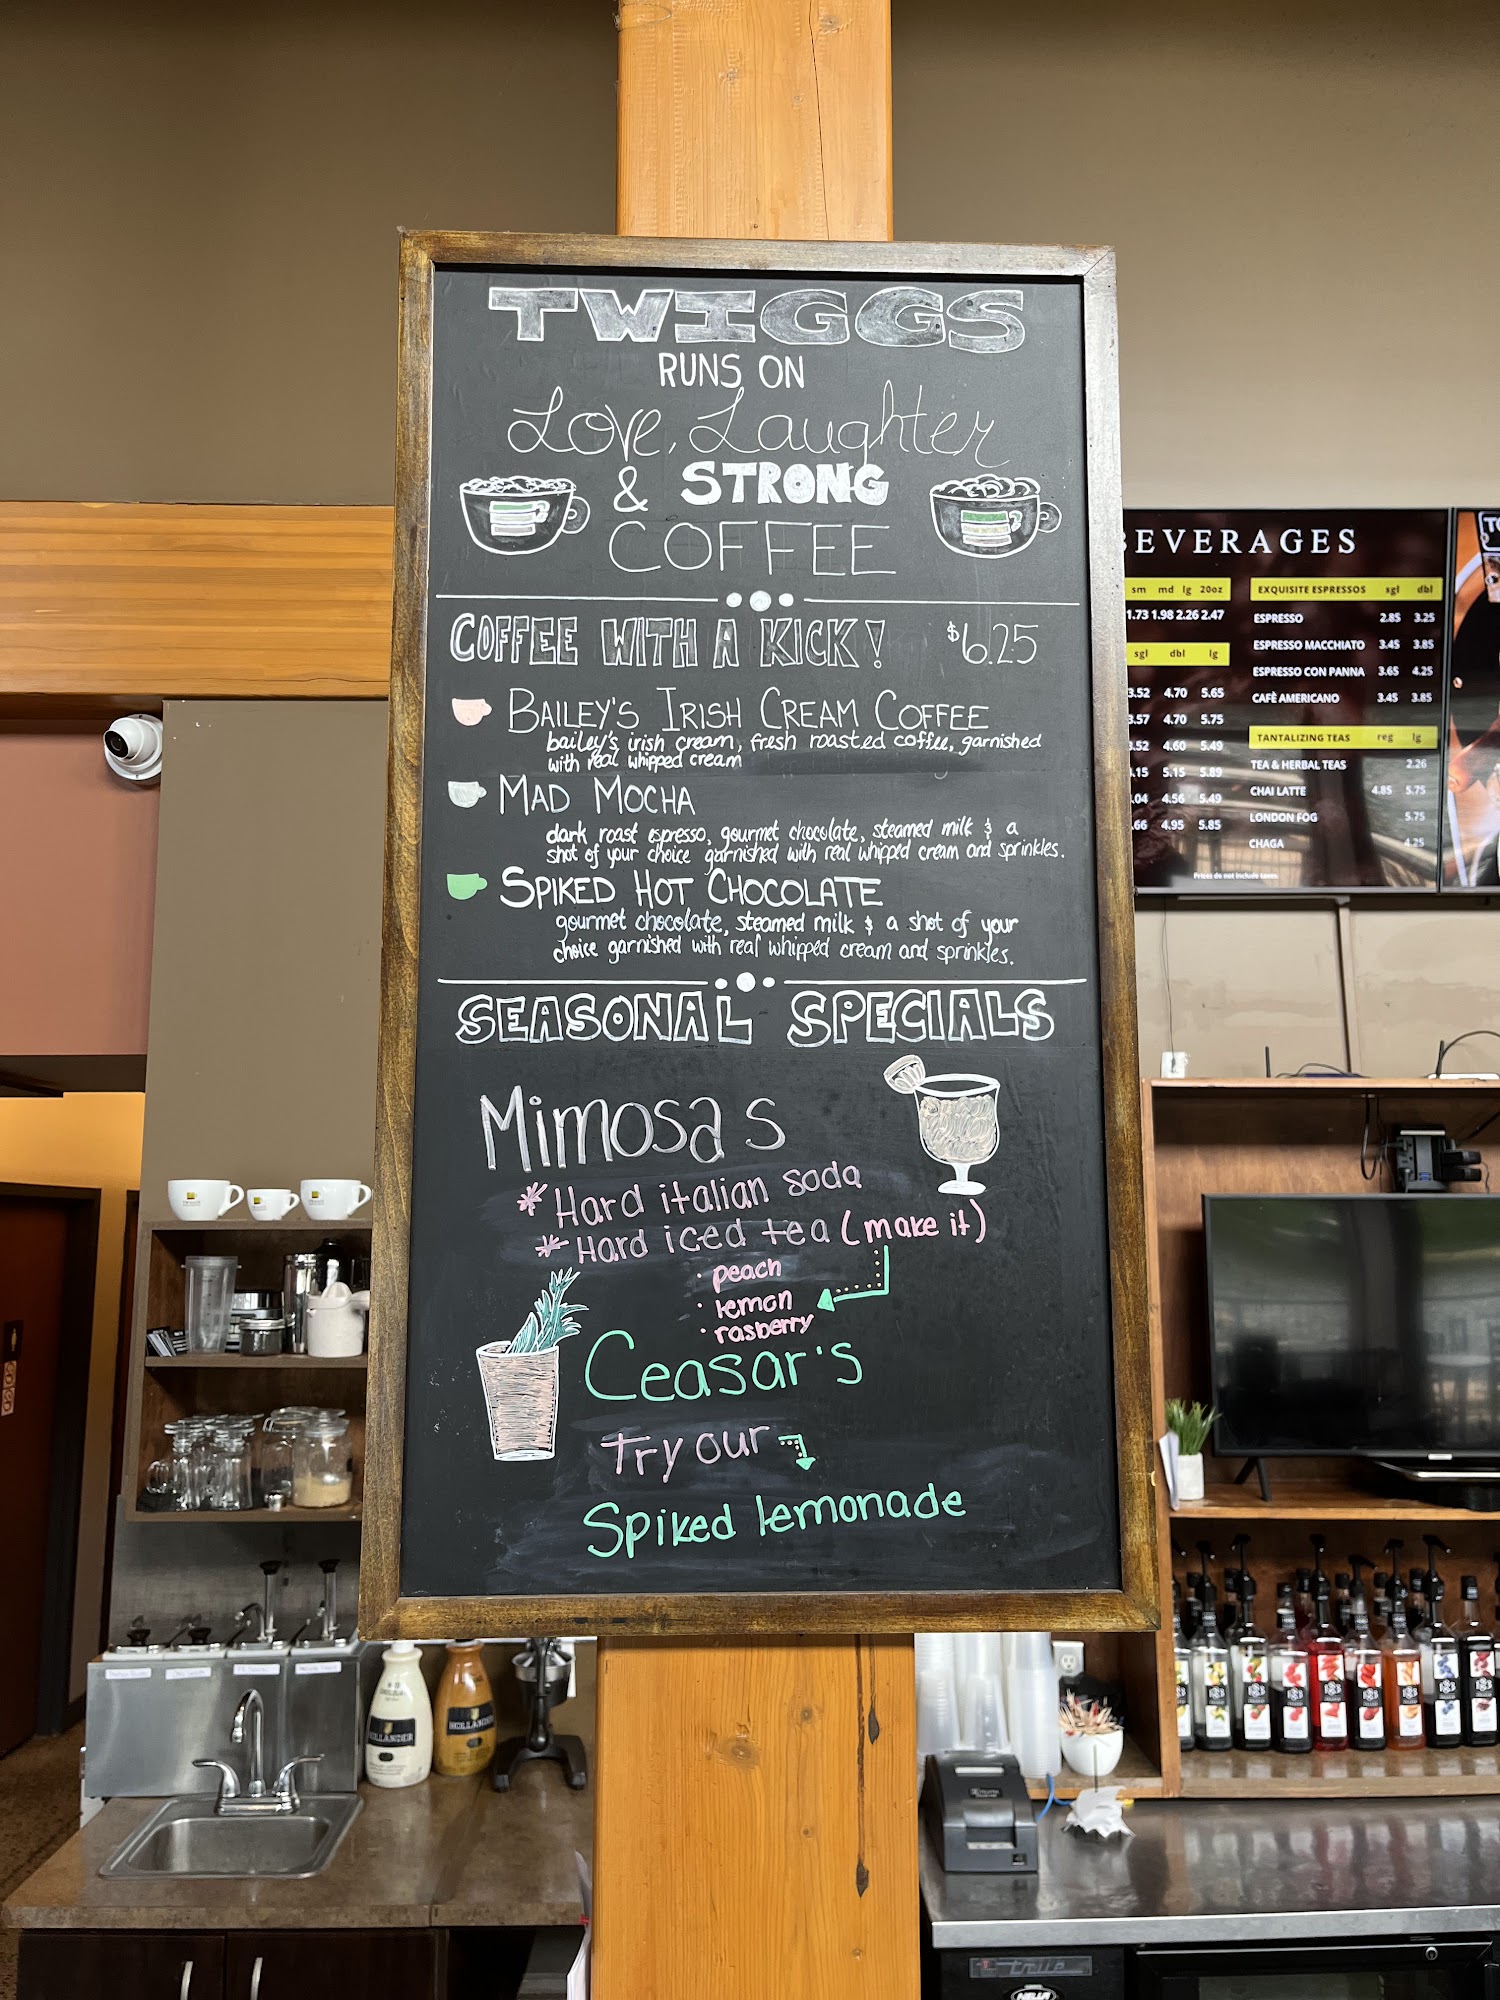 TWIGGS
RUNS ON
Love, Laughter
& STRONG
COFFEE
COFFEE WITH A KICK! $6.25
BAILEY'S IRISH CREAM COFFEE
bailey's irish cream, fresh roasted coffee, garnished
with real whipped cream
MAD MOCHA
dark roast espresso, gourmet chocolate, steamed milk & a
shot of your choice garnished with real whipped cream and sprinkles.
SPIKED HOT CHOCOLATE
gourmet chocolate, steamed milk & a shot of your
choice garnished with real whipped cream and sprinkles.
SEASONAL SPECIALS
Mimosas
* Hard italian soda
* Hard iced tea (make it)
· peach
· lemon
· rasberry
Ceasar's
Try our
Spiked lemonade
BEVERAGES
sm md lg 20oz
1.73 1.98 2.26 2.47
sgl dbl lg
3.52 4.70 5.65
3.57 4.70 5.75
3.52 4.60 5.49
.15 5.15 5.89
.04 4.56 5.49
.66 4.95 5.85
EXQUISITE ESPRESSOS sgl dbl
ESPRESSO 2.85 3.25
ESPRESSO MACCHIATO 3.45 3.85
ESPRESSO CON PANNA 3.65 4.25
CAFÈ AMERICANO 3.45 3.85
TANTALIZING TEAS reg lg
TEA & HERBAL TEAS 2.26
CHAI LATTE 4.85 5.75
LONDON FOG 5.75
CHAGA 4.25
Prices do not include taxes
HOLLANDER
HOLLANDER
true